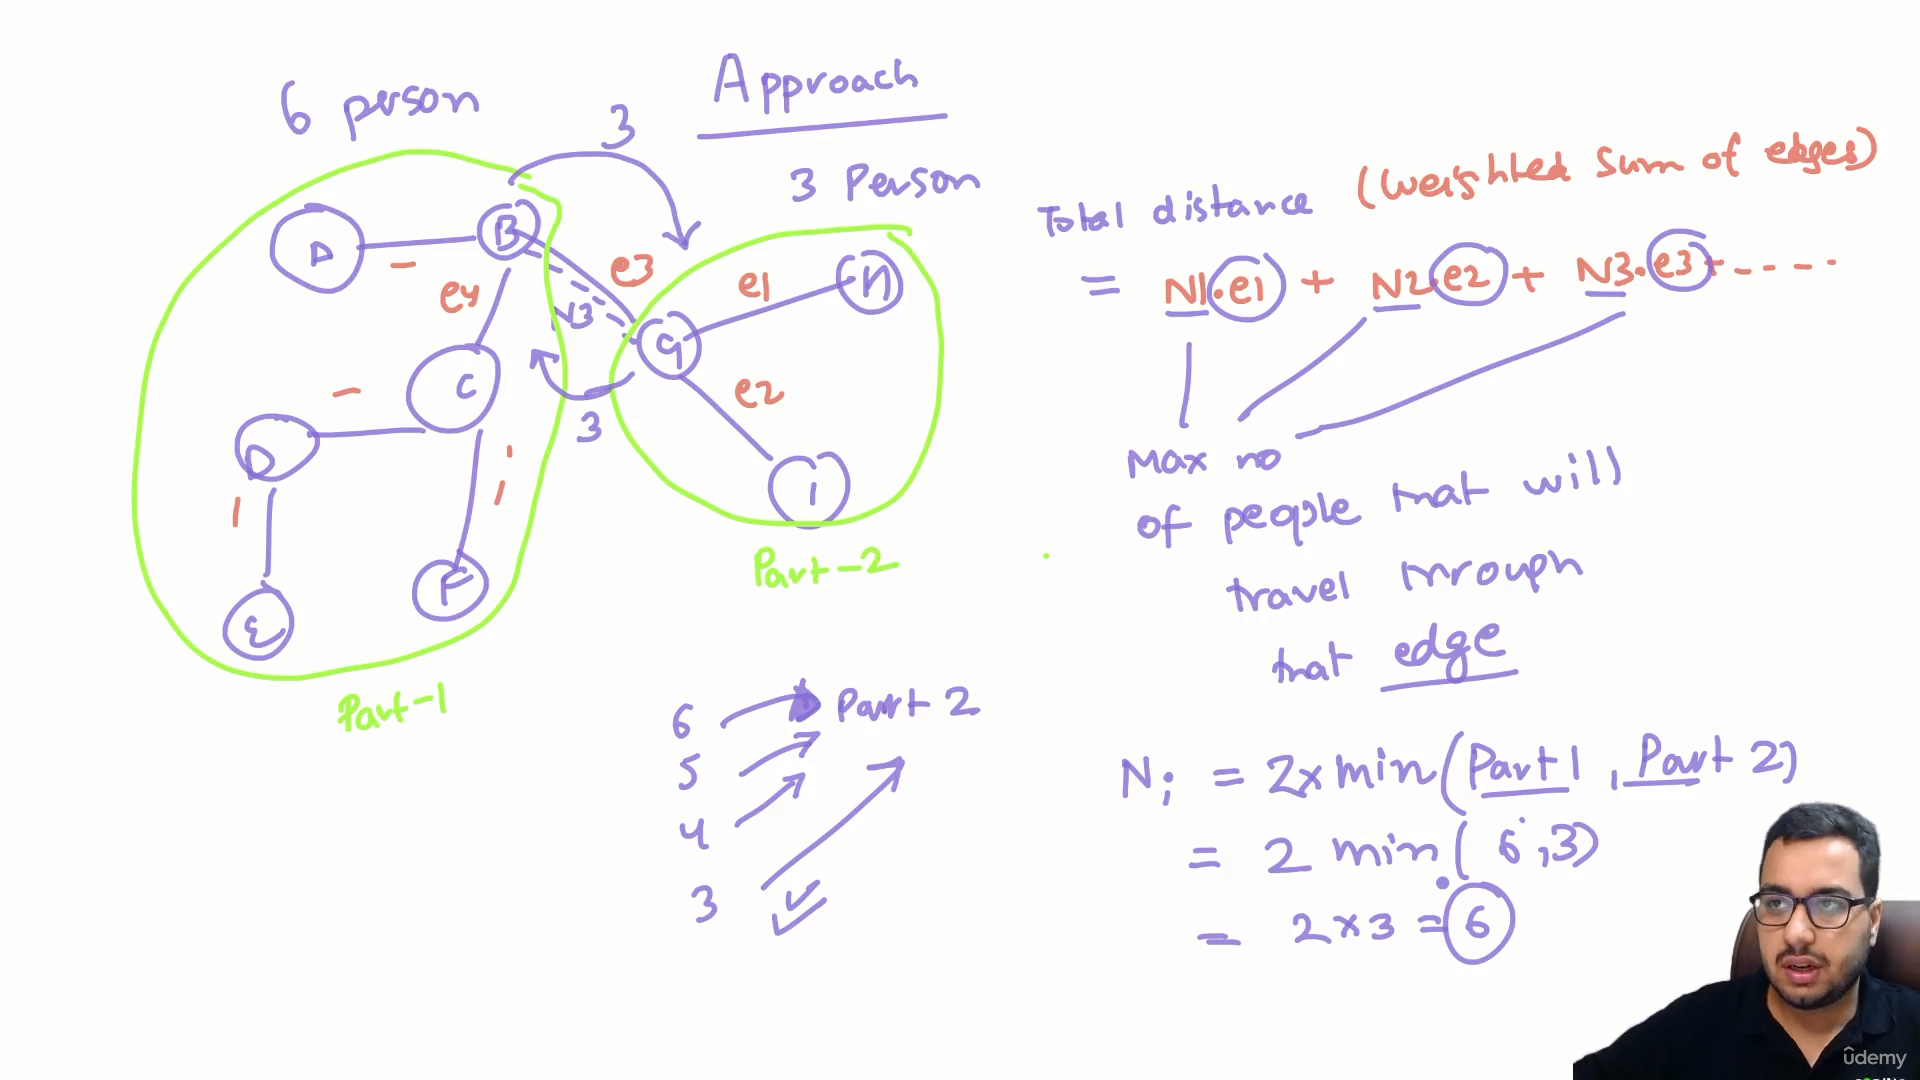 Approach
6 person
3
3 Person
A
B
e3
e4
N3
G
e1
H
C
e2
3
D
I
E
F
Part-1
Part-2
Total distance (weighted sum of edges)
= N1.e1 + N2.e2 + N3.e3 + ----
Max no
of people that will
travel through
that edge
6 Part 2
5
4
3
Ni = 2x min(Part 1, Part 2)
= 2 min(6,3)
= 2x3 = 6
ûdemy